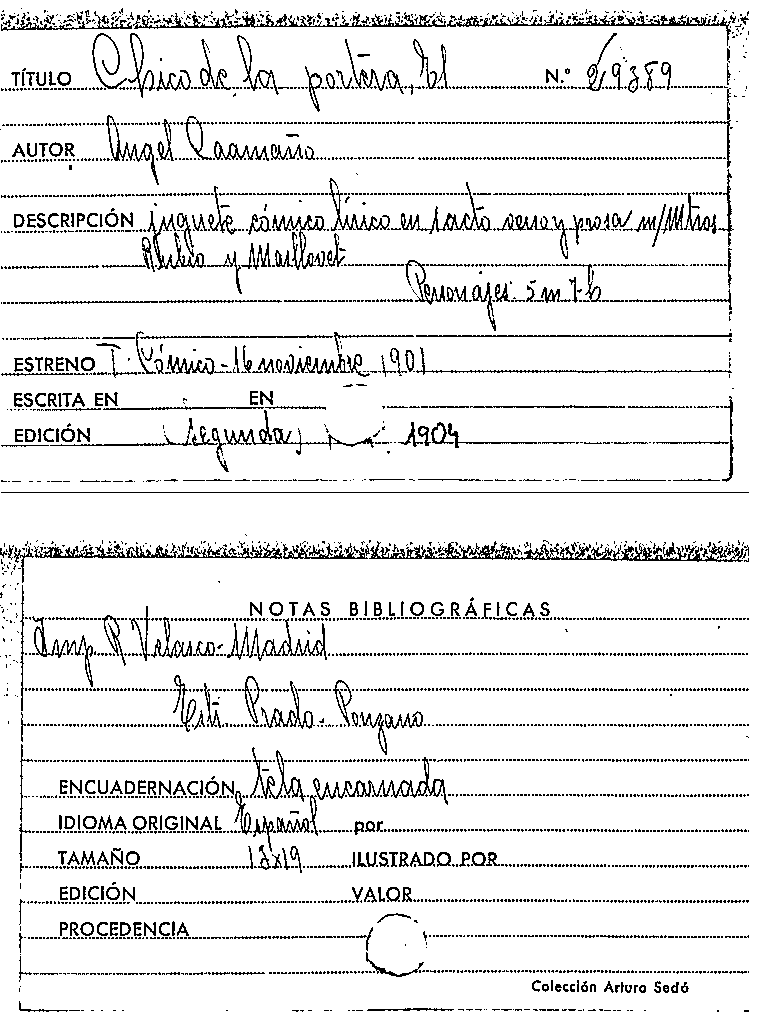 TÍTULO Chico de la portera, El N.º 29389
AUTOR Angel Caamaño
DESCRIPCIÓN juguete cómico lírico en 1 acto verso y prosa m/Mtros
Rubio y Maillovet
Personajes: 5 m 7 h
ESTRENO T. Cómico - 16 noviembre 1901
ESCRITA EN EN
EDICIÓN (segunda) 1904
NOTAS BIBLIOGRÁFICAS
Imp. R Velasco - Madrid
Prado - Ponzano
ENCUADERNACIÓN tela encarnada
IDIOMA ORIGINAL Español por
TAMAÑO 13x19 ILUSTRADO POR
EDICIÓN VALOR
PROCEDENCIA
Colección Arturo Sedó